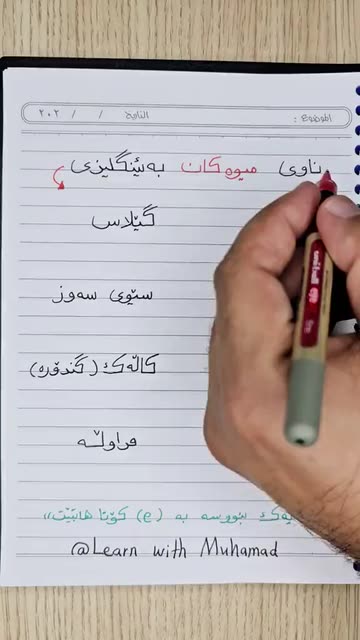 الموضوع : التاريخ / / ٢٠٢
ناوی میوەکان بەئینگلیزی
گێلاس
سێوی سەوز
کاڵەک (گندۆرە)
فراولە
بنووسە بە (e) کۆتا هاتبێت،،
@Learn with Muhamad